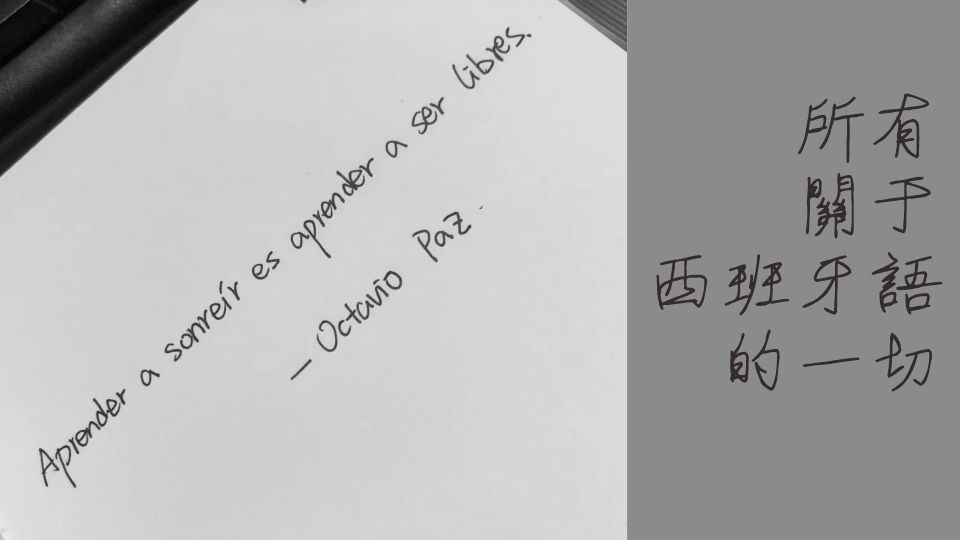 Aprender a sonreír es aprender a ser libres.
— Octavio Paz.
所有
關于
西班牙語
的一切